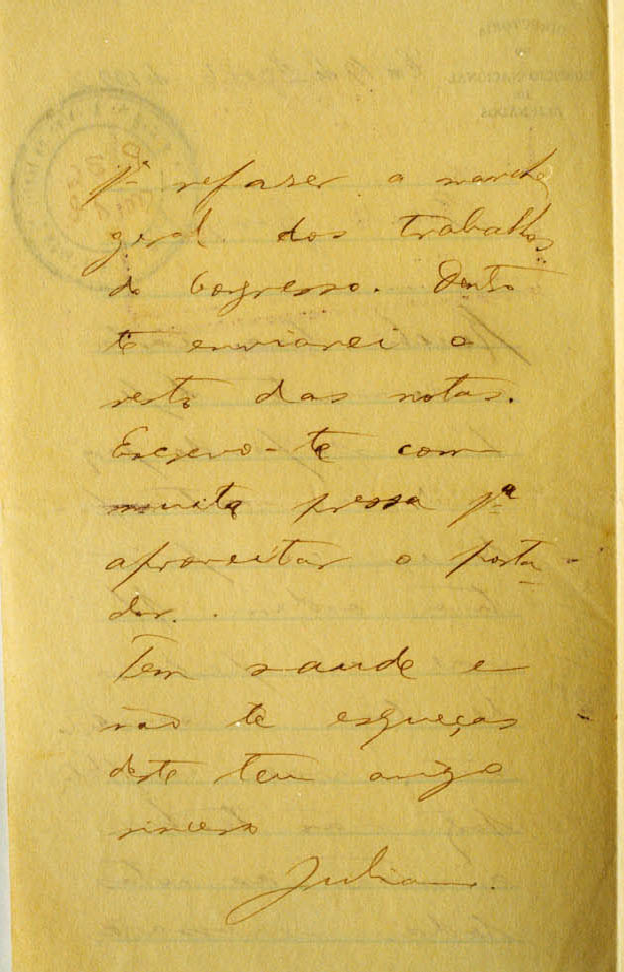 pª refazer a marcha
geral dos trabalhos
do Congresso. Dentro
te enviarei o
resto das notas.
Escrevo-te com
muita pressa pª
aproveitar o porta-
dor.
Tem saude e
não te esqueças
deste teu amigo
sincero
Juliano.